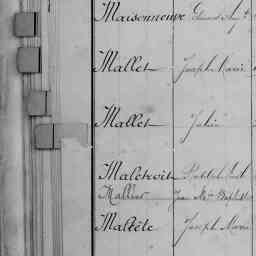 Maisonneuve Edmond Aug.te
Mallet Joseph Marie
Mallet Julien
Malétroit
Mallier Jean M.ie Baptiste
Maltête Joseph Marie